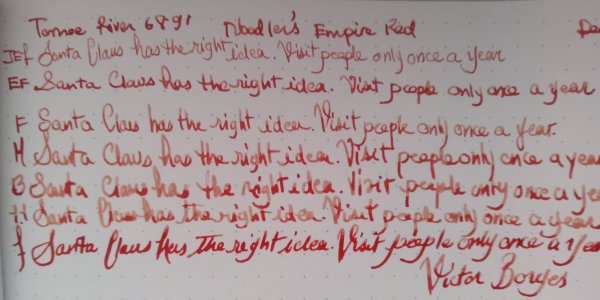 Tomoe River 68gr Noodler's Empire Red
JEF Santa Claus has the right idea. Visit people only once a year
EF Santa Claus has the right idea. Visit people only once a year
F Santa Claus has the right idea. Visit people only once a year.
M Santa Claus has the right idea. Visit people only once a year
B Santa Claus has the right idea. Visit people only once a ye
H Santa Claus has the right idea. Visit people only once a year
f Santa Claus has the right idea. Visit people only once a year
Victor Borges